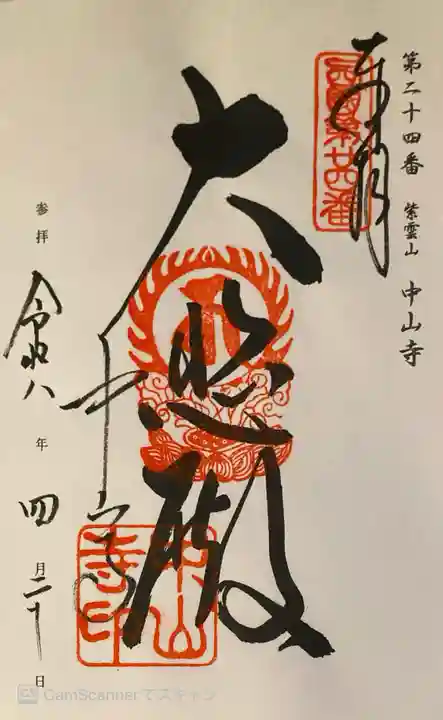 第二十四番 紫雲山 中山寺
奉拝
西国第廿四番
大悲殿
中山寺
中山寺印
参拝 令和八年 四月二十日
CamScannerでスキャン